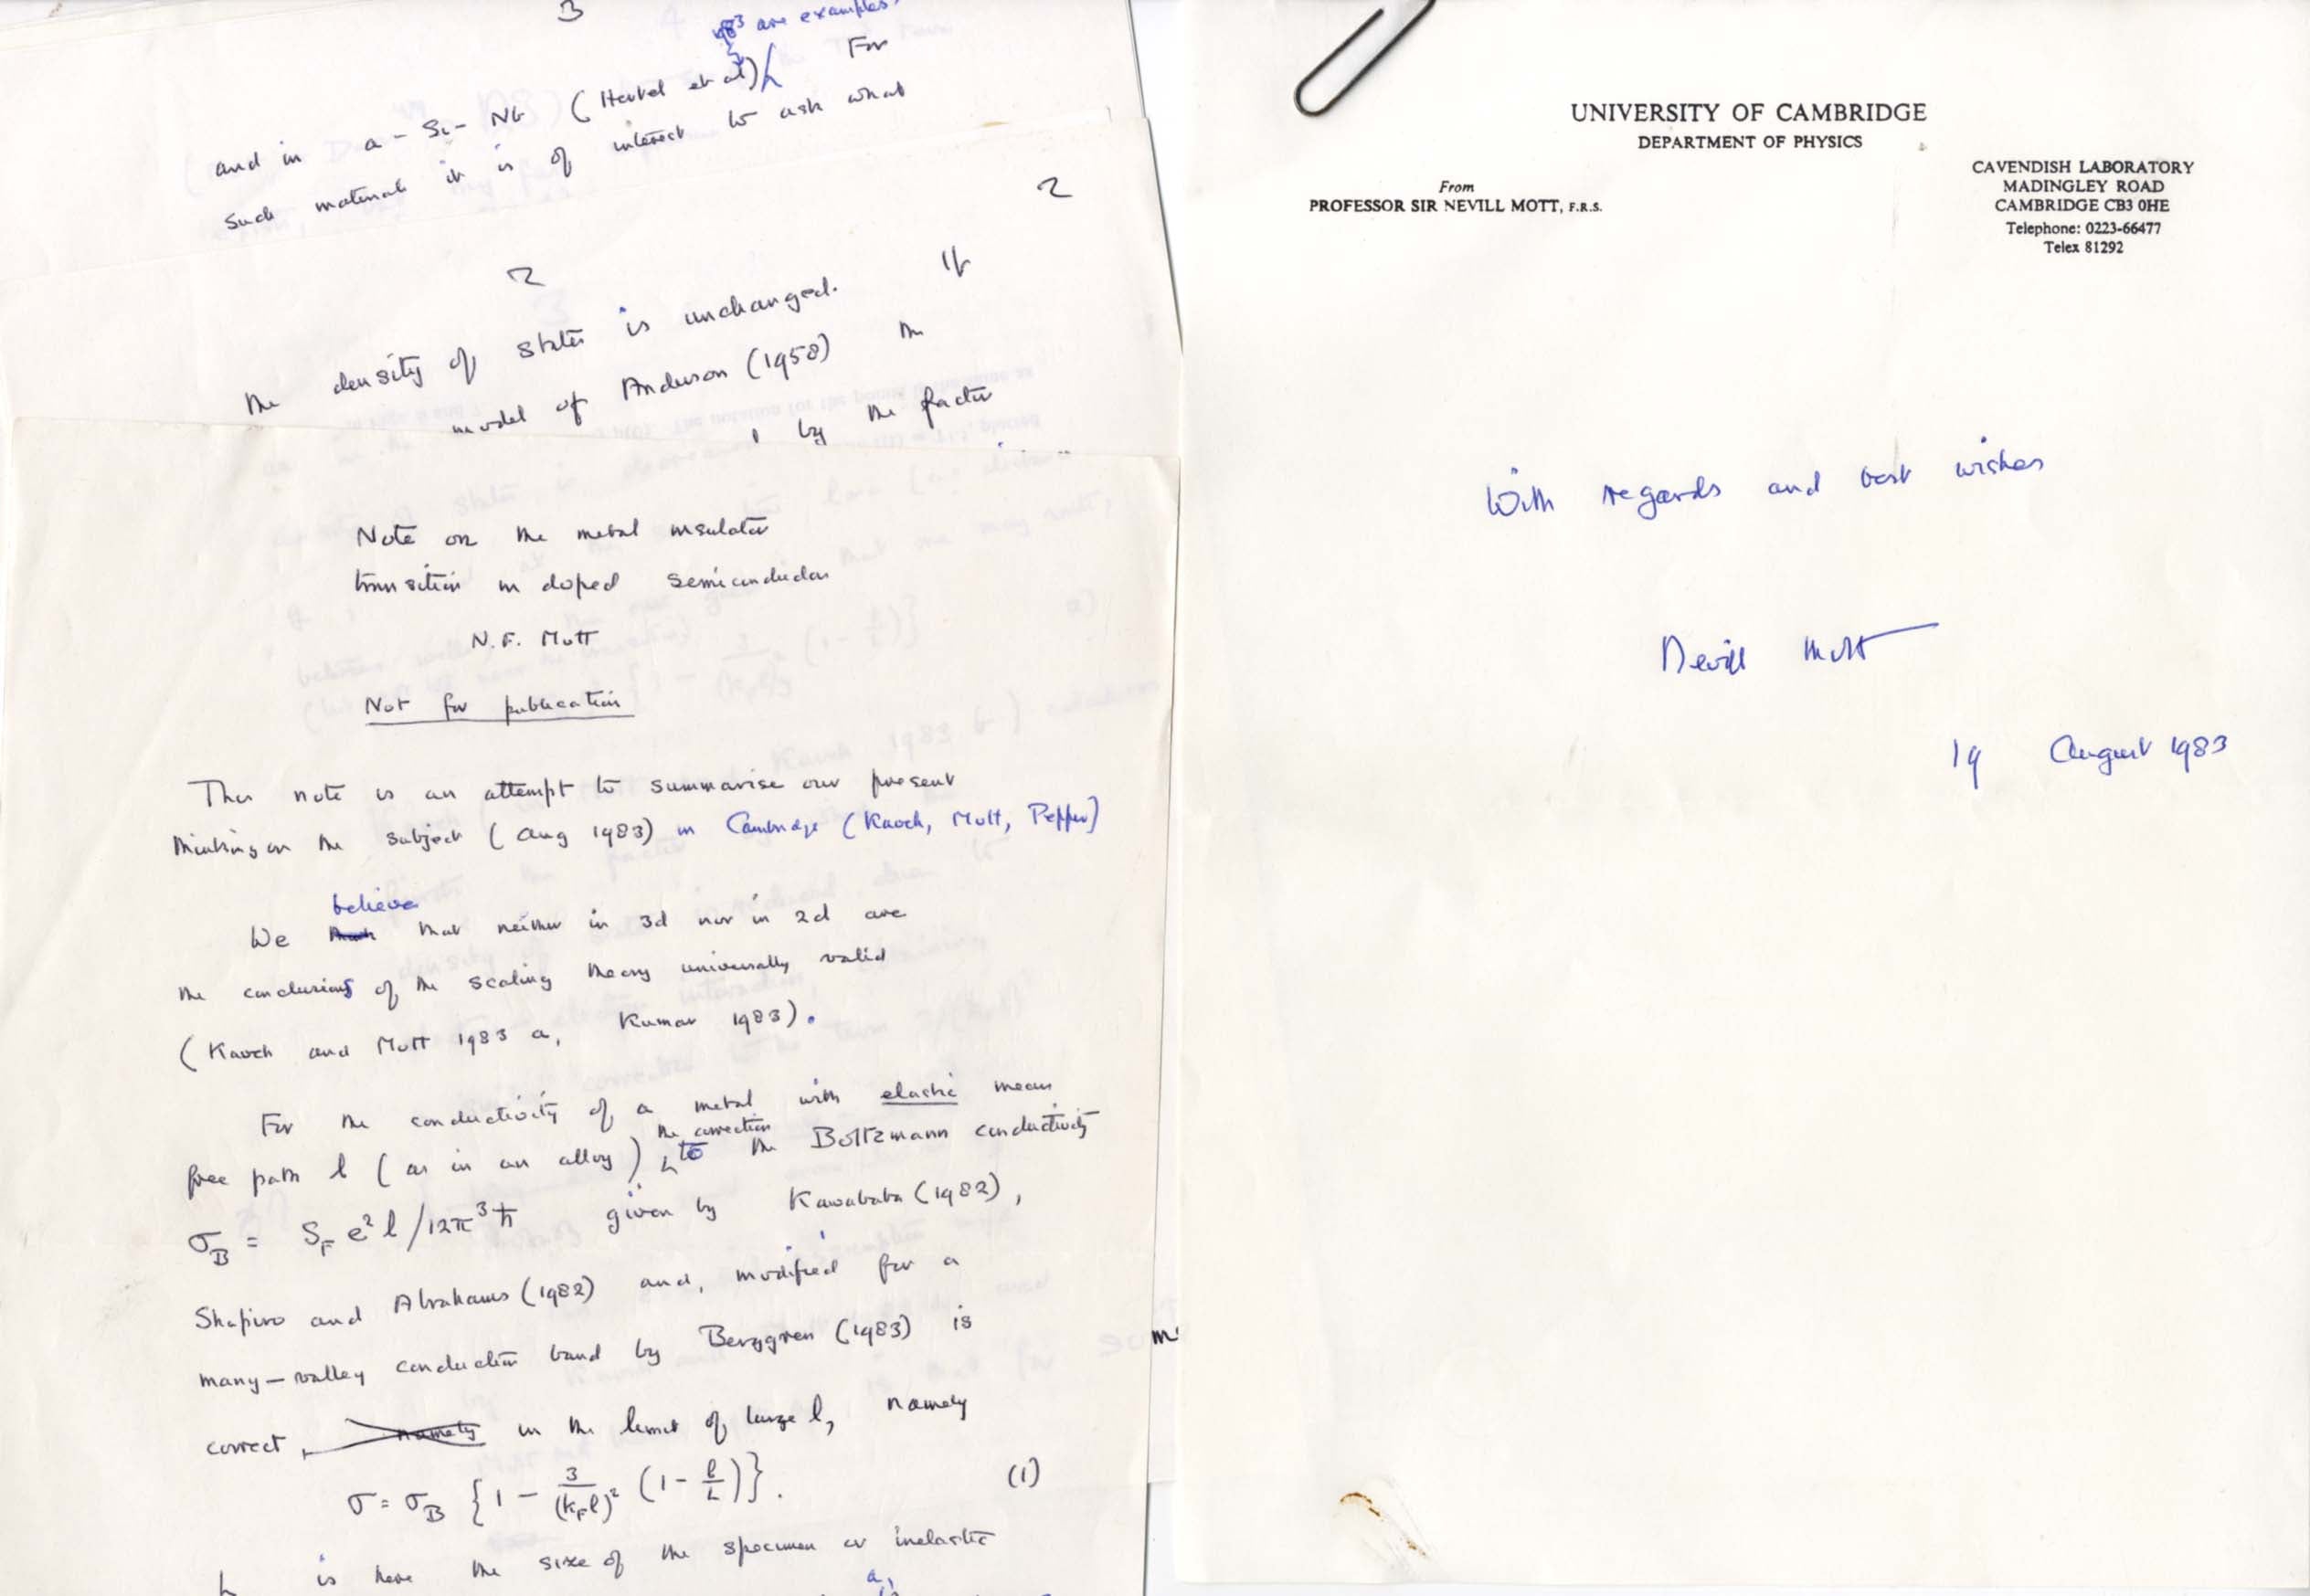 3
1983 are examples.
and in a-Si-Nb (Hertel et al) For
such materials it is of interest to ask what
2
2
the density of states is unchanged. If
model of Anderson (1958) the
by the factor
Note on the metal insulator
transition in doped semiconductors
N.F. Mott
Not for publication
This note is an attempt to summarise our present
thinking on the subject (Aug 1983) in Cambridge (Kaveh, Mott, Pepper)
believe
We that neither in 3d nor in 2d are
the conclusions of the scaling theory universally valid
(Kaveh and Mott 1983 a, Kumar 1983).
For the conductivity of a metal with elastic mean
the correction
free path l (as in an alloy) to the Boltzmann conductivity
σ_B = S_F e² l/12π³ħ given by Kawabata (1982),
Shapiro and Abrahams (1982) and, modified for a
many-valley conduction band by Berggren (1983) is
correct, namely in the limit of large l, namely
σ = σ_B {1 - 3/(k_F l)² (1 - l/L)}. (1)
L is here the size of the specimen or inelastic
UNIVERSITY OF CAMBRIDGE
DEPARTMENT OF PHYSICS
From
PROFESSOR SIR NEVILL MOTT, F.R.S.
CAVENDISH LABORATORY
MADINGLEY ROAD
CAMBRIDGE CB3 0HE
Telephone: 0223-66477
Telex 81292
With regards and best wishes
Nevill Mott
19 August 1983